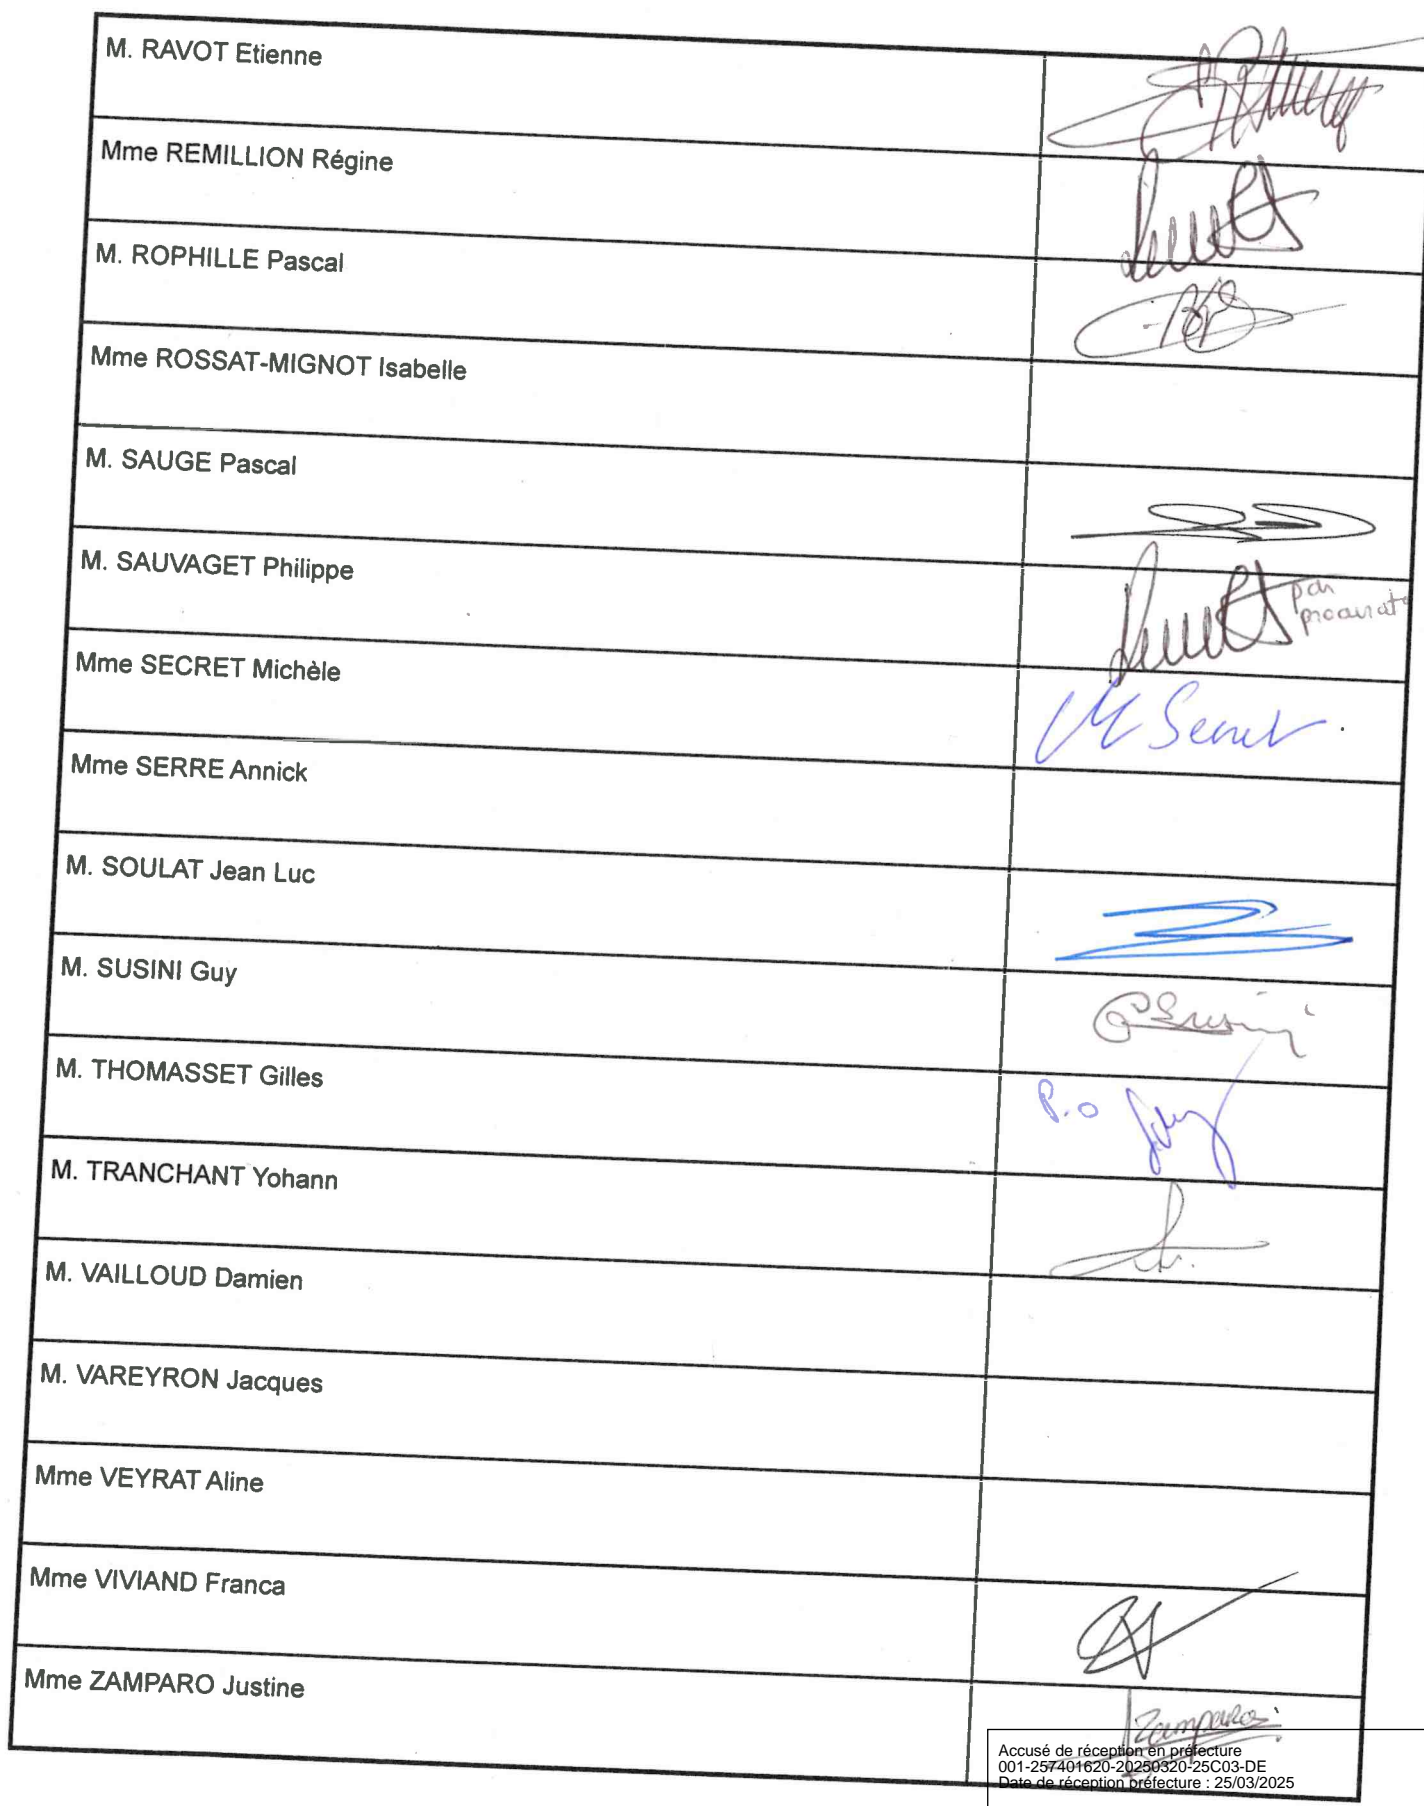 M. RAVOT Etienne
Mme REMILLION Régine
M. ROPHILLE Pascal
Mme ROSSAT-MIGNOT Isabelle
M. SAUGE Pascal
M. SAUVAGET Philippe
par
procurat
Mme SECRET Michèle
M Secret
Mme SERRE Annick
M. SOULAT Jean Luc
M. SUSINI Guy
Susini
M. THOMASSET Gilles
P.O
M. TRANCHANT Yohann
M. VAILLOUD Damien
M. VAREYRON Jacques
Mme VEYRAT Aline
Mme VIVIAND Franca
Mme ZAMPARO Justine
Zamparo
Accusé de réception en préfecture
001-257401620-20250320-25C03-DE
Date de réception préfecture : 25/03/2025